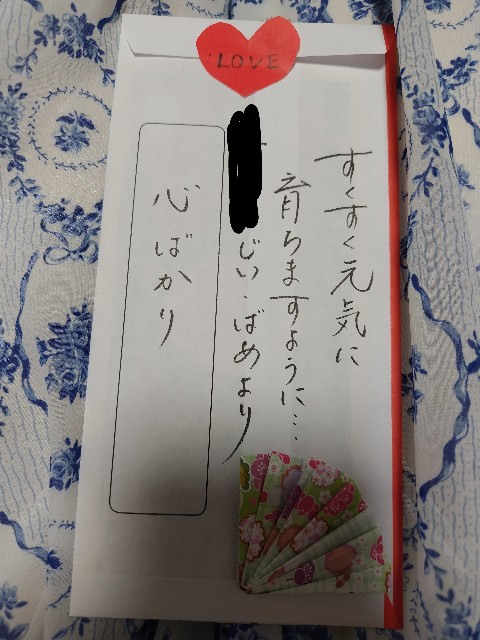 LOVE
すくすく元気に
育ちますように…
じい・ばめより
心ばかり